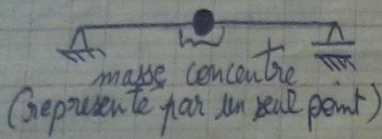 masse concentre
(représenté par un seul point)